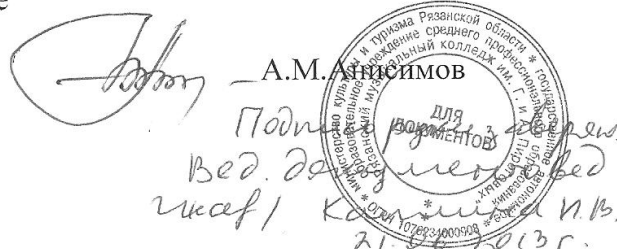 А.М.Анисимов
министерство культуры и туризма Рязанской области * государственное автономное
образовательное учреждение среднего профессионального образования
Рязанский музыкальный колледж им. Г. и А. Пироговых
ДЛЯ
ДОКУМЕНТОВ
Вед. документовед
И.В.
2013г.